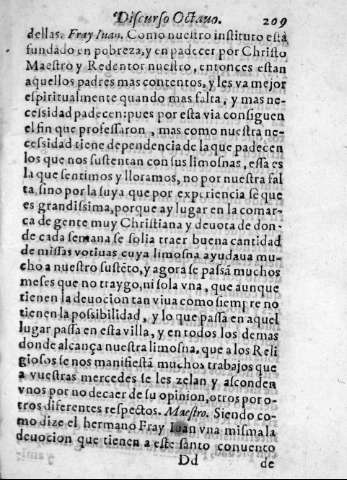 Discurso Octauo. 209
dellas. Fray Iuan. Como nuestro instituto está
fundado en pobreza, y en padecer por Christo
Maestro y Redentor nuestro, entonces estan
aquellos padres mas contentos, y les va mejor
espiritualmente quando mas falta, y mas ne-
cessidad padecen: pues por esta via consiguen
el fin que professaron, mas como nuestra ne-
cessidad tiene dependencia de la que padecen
los que nos sustentan con sus limosnas, essa es
la que sentimos y lloramos, no por nuestra fal
ta, sino por la suya que por experiencia se que
es grandissima, porque ay lugar en la comar-
ca de gente muy Christiana y deuota de don-
de cada semana se solia traer buena cantidad
de missas votiuas cuya limosna ayudaua mu-
cho a nuestro sustēto, y agora se passā muchos
meses que no traygo, ni sola vna, que aunque
tienen la deuocion tan viua como siempre no
tienen la possibilidad, y lo que passa en aquel
lugar passa en esta villa, y en todos los demas
donde alcança nuestra limosna, que a los Reli
giosos se nos manifiestā muchos trabajos que
a vuestras mercedes se les zelan y asconden
vnos por no decaer de su opinion, otros por o-
tros diferentes respectos. Maestro. Siendo co-
mo dize el hermano Fray Iuan vna misma la
deuocion que tienen a este santo conuento
Dd de